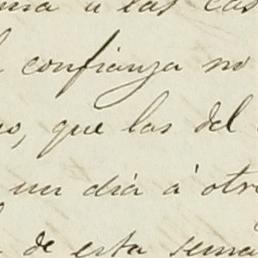 a las cas
confianza no
que las del
un día á otr
de esta sema